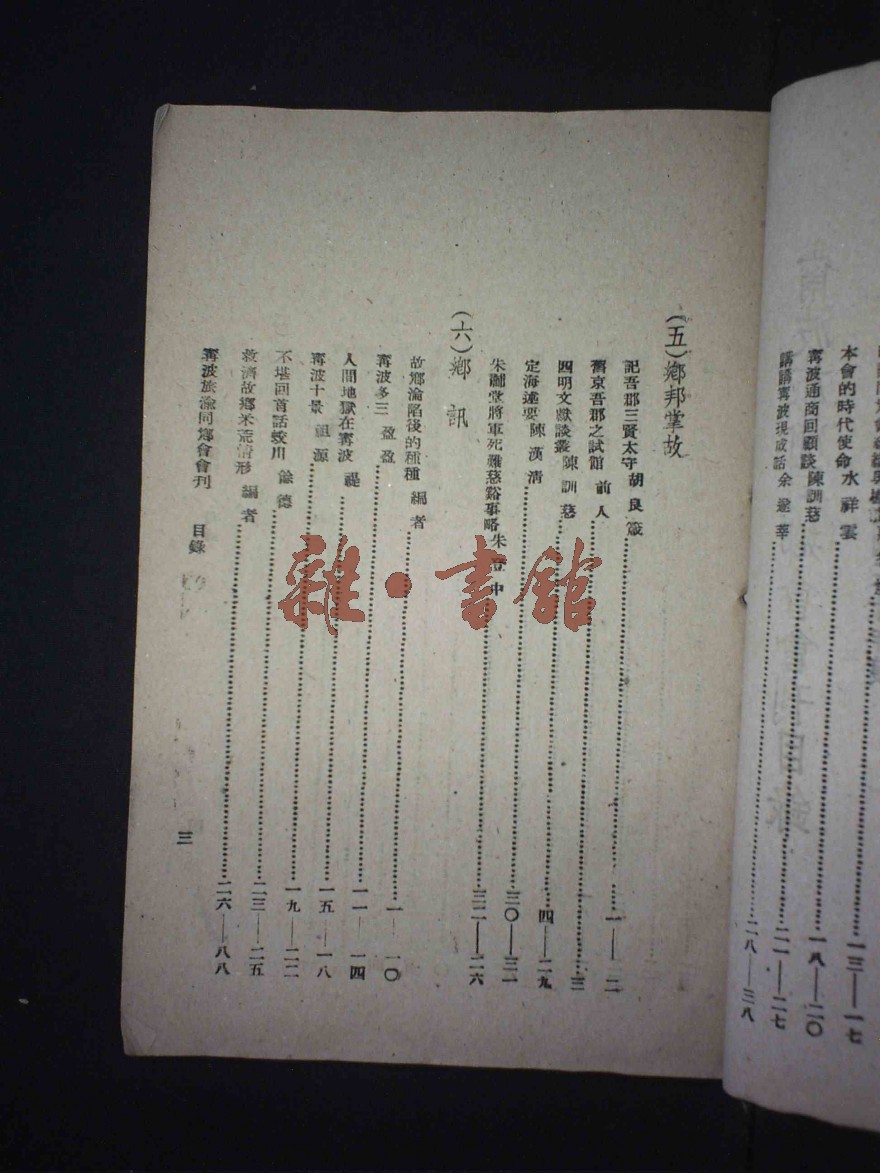 本會的時代使命 水祥雲 一三——一七
甯波通商回顧談 陳訓慈 一八——二〇
講講甯波現成話 余 二一——二七
二八——三八
(五)鄉邦掌故
記吾郡三賢太守 胡良箴 一——二
舊京吾郡之試館 前人 三
四明文獻談叢 陳訓慈 四——二九
定海述要 陳漢清 三〇——三一
朱黼堂將軍死難慈谿事略 朱立中 三二——二六
(六)鄉訊
故鄉淪陷後的種種 編者 一——一〇
甯波多三 盈盈
人間地獄在甯波 禔 一一——一四
甯波十景 祖源 一五——一八
不堪回首話蛟川 餘德 一九——二二
救濟故鄉米荒情形 編者 二三——二五
二六——八八
甯波旅渝同鄉會會刊 目錄
三
雜·書館